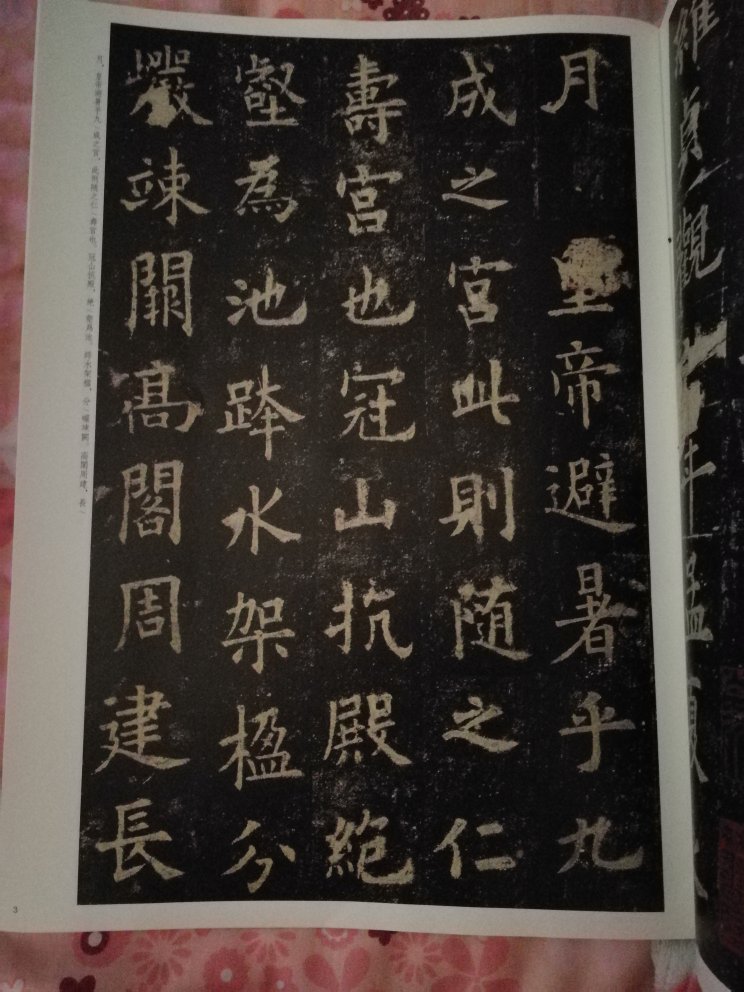 維貞觀
孟
月皇帝避暑乎九
成之宮此則随之仁
壽宮也冠山抗殿絕
壑為池跨水架楹分
巖竦闕高閣周建長
月，皇帝避暑乎九\成之宮，此則隨之仁\壽宮也。冠山抗殿，絕\壑爲池，跨水架楹，分\巖竦闕，高閣周建，長\
3